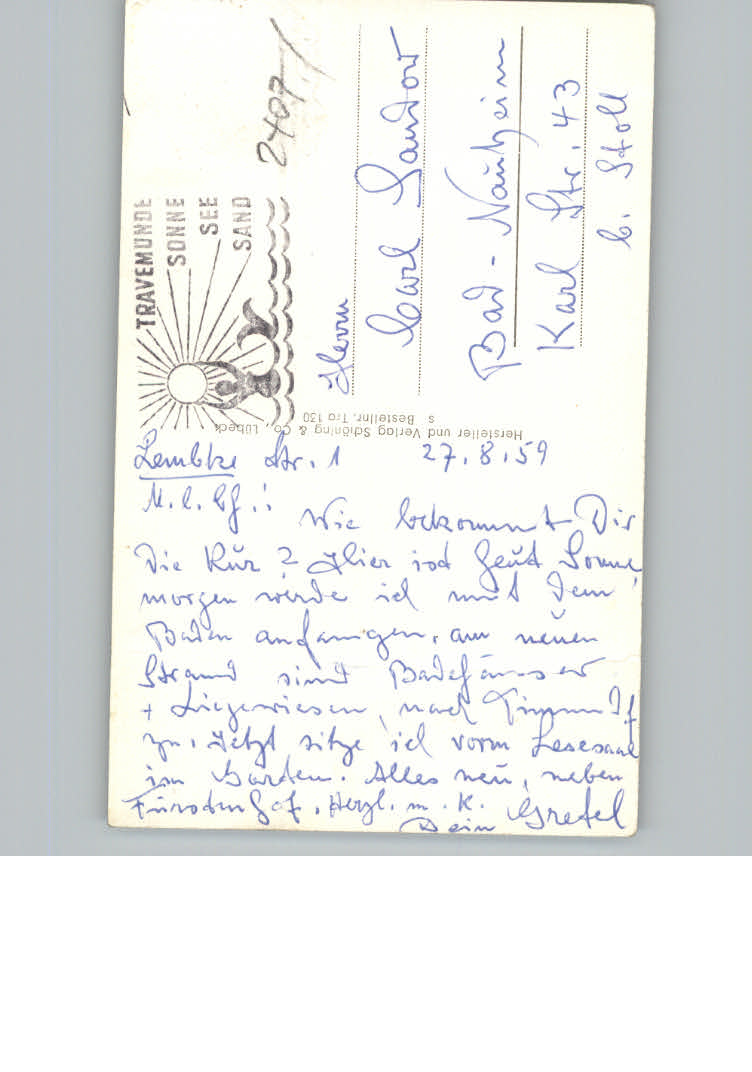 TRAVEMÜNDE
SONNE
SEE
SAND
2407
Herrn
Carl Sandow
Bad-Nauheim
Karl Str. 43
b. Stoll
Hersteller und Verlag Schöning & Co., Lübeck
s Bestellnr. Tra 130
Lembke Str. 1 27.8.59
M. l. C.!
Wie bekommt Dir
die Kur? Hier ist heut Sonne,
morgen werde ich mit dem
Baden anfangen, am neuen
Strand sind Badehäuser
+ Liegewiesen, nach Timmdf
zu. Jetzt sitze ich vorm Lesesaal
im Garten. Alles neu, neben
Fürstenhof. Herzl. m. K.
Dein Gretel